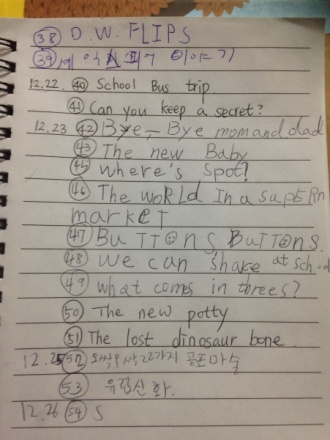 ㊳ D.W. FLIPS
㊴ 이야기
12.22. ㊵ School Bus trip
㊶ Can you keep a secret?
12.23 ㊷ Bye-Bye mom and dad
㊸ The new Baby
where's Spot?
㊻ The woRLD In a supERn
market
㊼ BuTTons BuTTons
㊽ we can shake at school
㊾ what comes in threes?
㊿ The new potty
51 The lost dinosaur bone
12.25 52 22가지 공포마숙
53 유령신화.
12.26 54 S